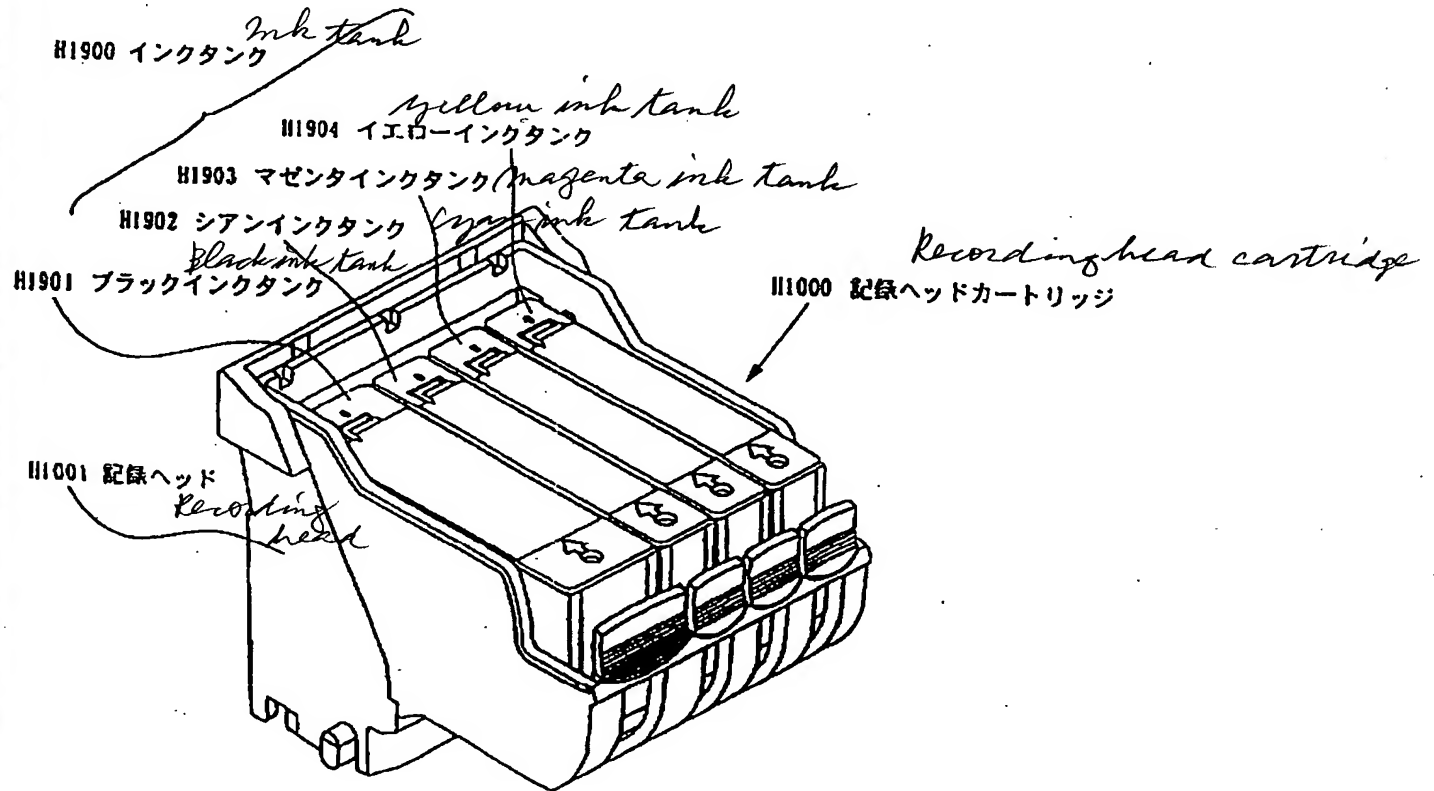 Ink tank
H1900 インクタンク
yellow ink tank
H1904 イエローインクタンク
H1903 マゼンタインクタンク magenta ink tank
H1902 シアンインクタンク cyan ink tank
Black ink tank
H1901 ブラックインクタンク
Recording head cartridge
H1000 記録ヘッドカートリッジ
H1001 記録ヘッド
Recording
head